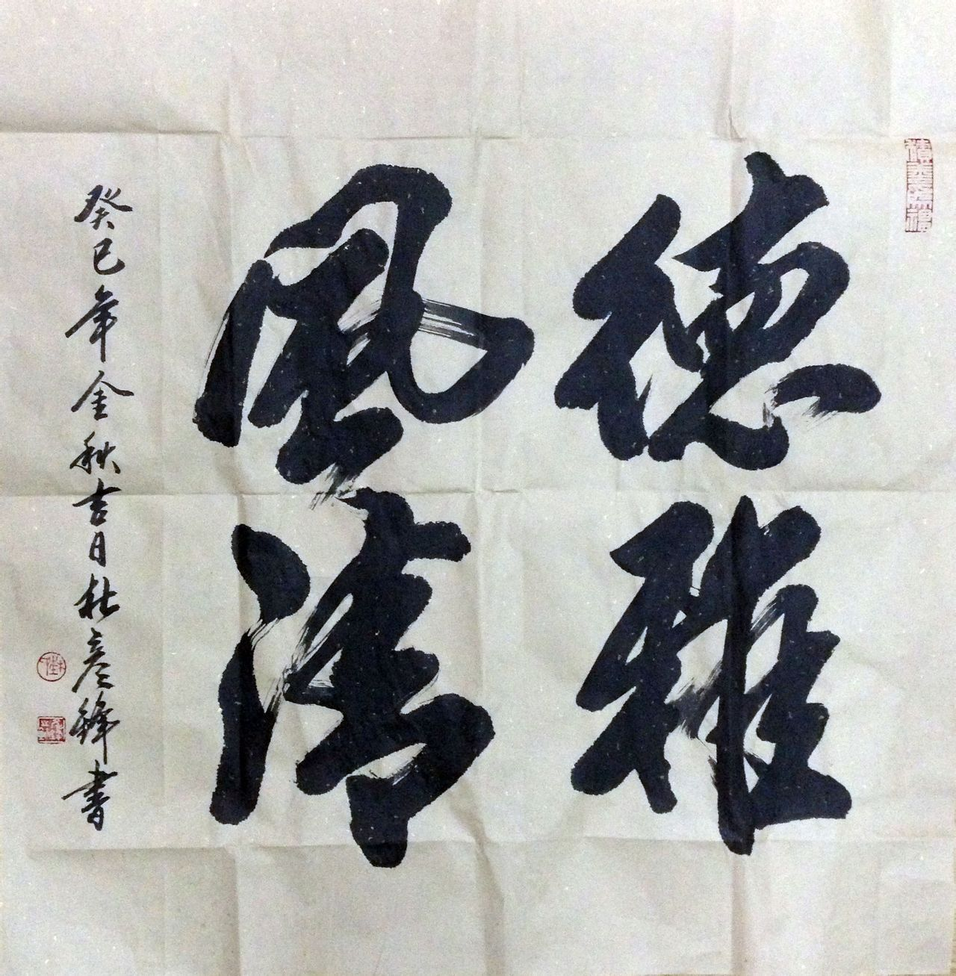 德雅
風清
癸巳年金秋吉日杜彦鋒書